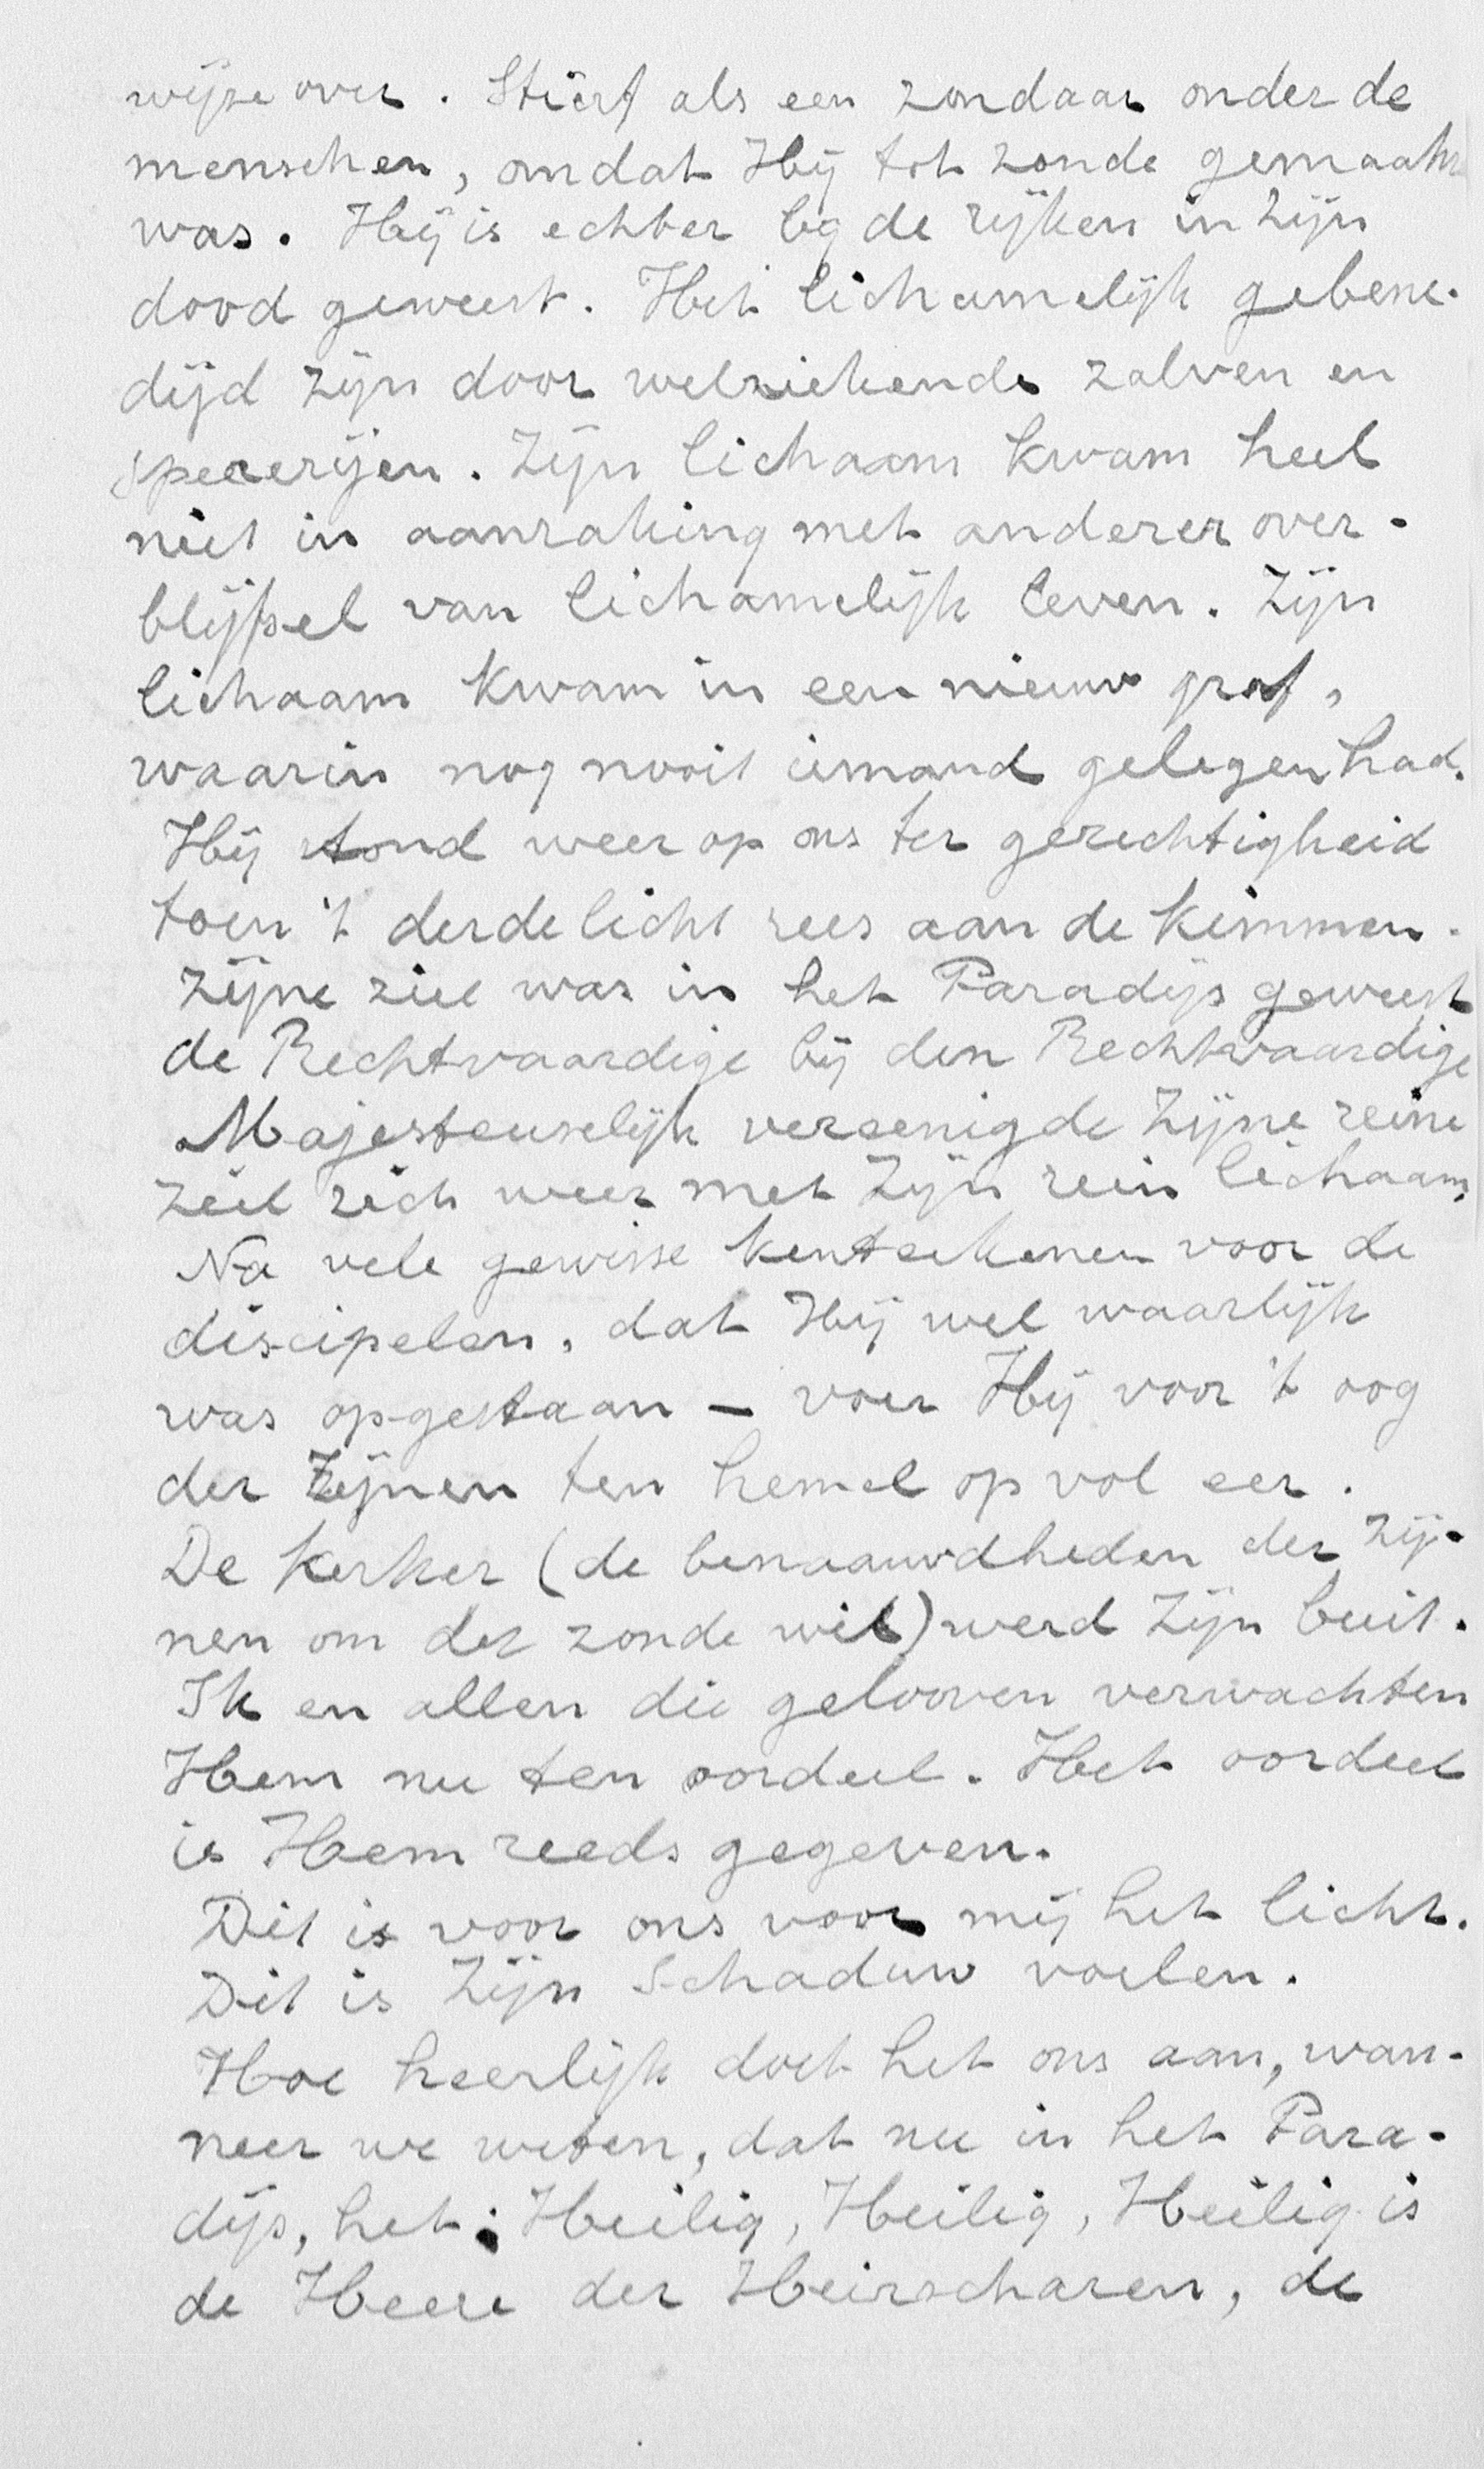 wijze over. Stierf als een zondaar onder de
menschen, omdat Hij tot zonde gemaakt
was. Hij is echter bij de rijken in zijn
dood geweest. Het lichamelijk gebene-
dijd zijn door welriekende zalven en
specerijen. Zijn lichaam kwam heel
niet in aanraking met anderer over-
blijfsel van lichamelijk leven. Zijn
lichaam kwam in een nieuw graf,
waarin nog nooit iemand gelegen had.
Hij stond weer op ons ter gerechtigheid
toen 't derde licht rees aan de kimmen.
Zijne ziel was in het Paradijs geweest
de Rechtvaardige bij den Rechtvaardige
Majesteuselijk vereenigde Zijne reine
ziel zich weer met Zijn rein lichaam,
Na vele gewisse kenteekenen voor de
discipelen, dat Hij wel waarlijk
was opgestaan - voer Hij voor 't oog
der Zijnen ten hemel op vol eer.
De kerker (de benaauwdheden der Zij-
nen om der zonde wil) werd Zijn buit.
Ik en allen die gelooven verwachten
Hem nu ten oordeel. Het oordeel
is Hem reeds gegeven.
Dit is voor ons voor mij het licht.
Dit is Zijn schaduw voelen.
Hoe heerlijk doet het ons aan, wan-
neer we weten, dat nu in het Para-
dijs, het: Heilig, Heilig, Heilig is
de Heere der Heirscharen, de